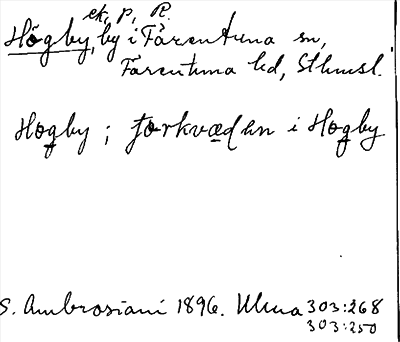 ek, p, R.
Högby, by i Färentuna sn,
Färentuna hd, Sthmsl.
Hogby ; forkvædan i Hogby
S. Ambrosiani 1896. Ulma 303:268
303:250